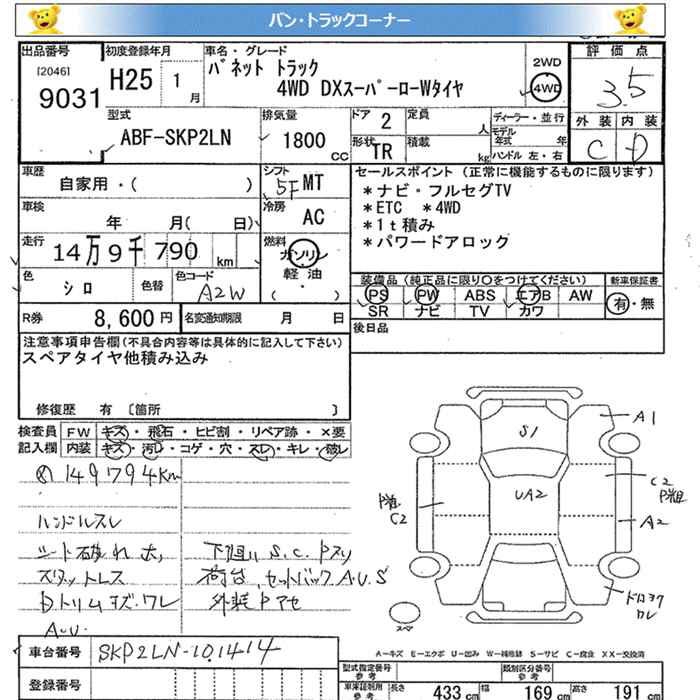 バン・トラックコーナー
出品番号 初度登録年月 車名・グレード 評価点
[2046]
9031
H25 1月
バネット トラック
4WD DXスーパーローWタイヤ
2WD
4WD
3.5
型式 排気量 ドア 定員 ディーラー・並行 外装 内装
ABF-SKP2LN
1800 CC
2
人
モデル年式 年
形状 積載
TR
kg
ハンドル 左・右
C D
車歴 シフト セールスポイント (正常に機能するものに限ります)
自家用・( )
5F MT
*ナビ・フルセグTV
*ETC *4WD
*1t積み
*パワードアロック
車検 冷房
年 月( 日)
AC
走行 燃料
14万9千790km
ガソリン
軽油
( )
色 色替 色コード
シロ
A2W
装備品 (純正品に限り○をつけてください) 新車保証書
PS PW ABS エアB AW
SR ナビ TV カワ
有・無
R券 8,600円 名変通知期限 月 日
後日品
注意事項申告欄(不具合内容等は具体的に記入して下さい)
スペアタイヤ他積み込み
修復歴 有 〔箇所 〕
検査員 FW キズ・飛石・ヒビ割・リペア跡・×要
記入欄 内装 キズ・汚レ・コゲ・穴・スレ・キレ・破レ
149794Km
ハンドルスレ
シート破れ大
スタットレス
Dトリムキズ・ワレ
A.U.
下廻り S.C. Pスリ
荷台、セットバックA.U.S
外装Pアセ
A1
S1
UA2
C2
P滝
C2
A2
ドロヨケ
ワレ
スペア
A-キズ E-エクボ U-凹み W-補修跡 S-サビ C-腐食 XX-交換済
車台番号 SKP2LN-101414
登録番号
型式指定番号 参考
類別区分番号 参考
車庫証明用 参考 長さ 433cm 幅 169cm 高さ 191cm